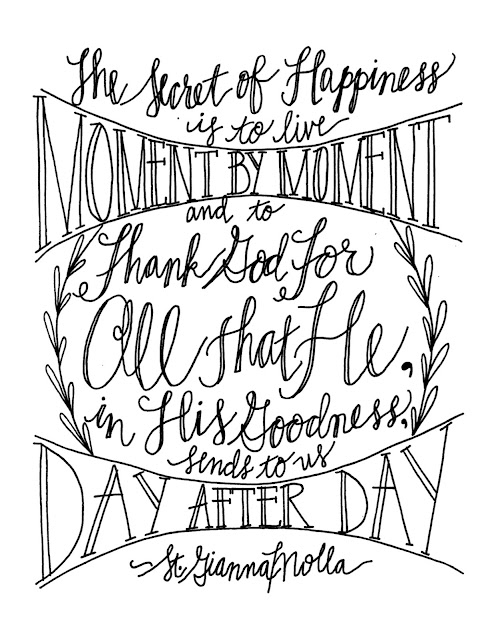 The Secret of Happiness
is to live
MOMENT BY MOMENT
and to
Thank God for
All that He,
in His Goodness,
sends to us
DAY AFTER DAY
~St. Gianna Molla~